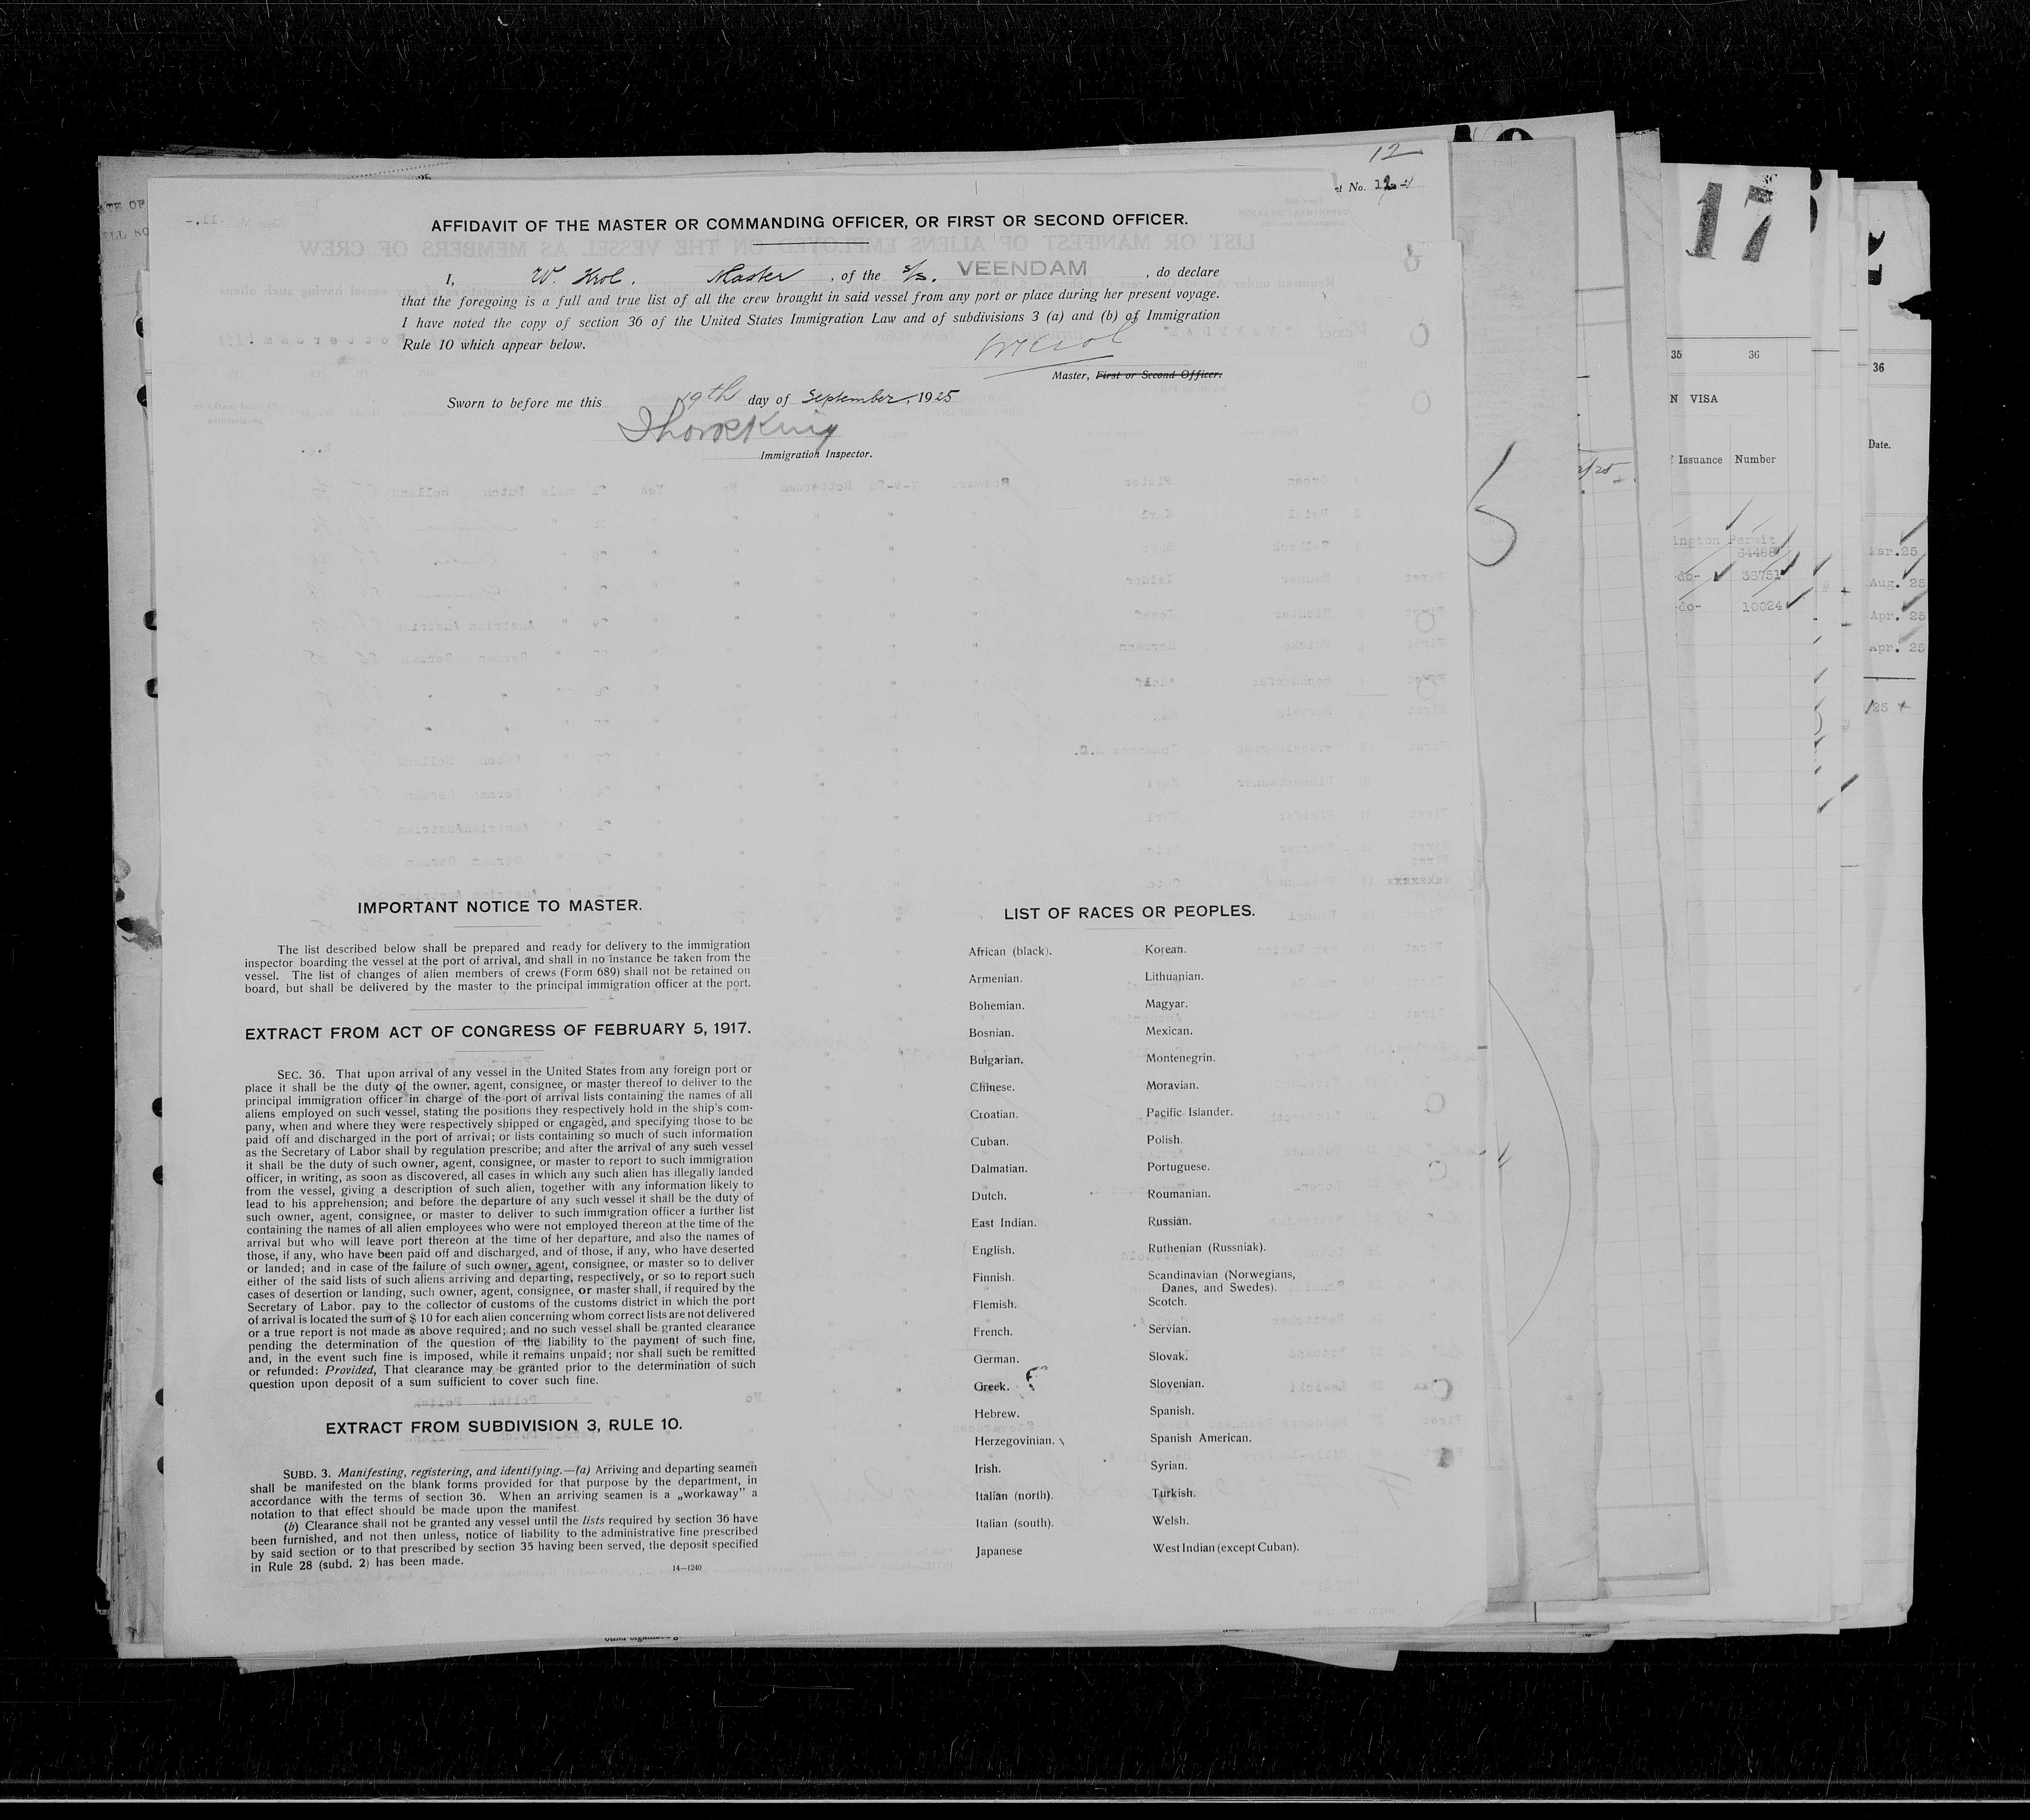 12
No. 12
AFFIDAVIT OF THE MASTER OR COMMANDING OFFICER, OR FIRST OR SECOND OFFICER.
I, W. Krol. Master, of the s/s. VEENDAM, do declare
that the foregoing is a full and true list of all the crew brought in said vessel from any port or place during her present voyage.
I have noted the copy of section 36 of the United States Immigration Law and of subdivisions 3 (a) and (b) of Immigration
Rule 10 which appear below.
WKrol
Master, First or Second Officer.
Sworn to before me this 19th day of September, 1925
Immigration Inspector.
IMPORTANT NOTICE TO MASTER.
The list described below shall be prepared and ready for delivery to the immigration
inspector boarding the vessel at the port of arrival, and shall in no instance be taken from the
vessel. The list of changes of alien members of crews (Form 689) shall not be retained on
board, but shall be delivered by the master to the principal immigration officer at the port.
EXTRACT FROM ACT OF CONGRESS OF FEBRUARY 5, 1917.
SEC. 36. That upon arrival of any vessel in the United States from any foreign port or
place it shall be the duty of the owner, agent, consignee, or master thereof to deliver to the
principal immigration officer in charge of the port of arrival lists containing the names of all
aliens employed on such vessel, stating the positions they respectively hold in the ship's com-
pany, when and where they were respectively shipped or engaged, and specifying those to be
paid off and discharged in the port of arrival; or lists containing so much of such information
as the Secretary of Labor shall by regulation prescribe; and after the arrival of any such vessel
it shall be the duty of such owner, agent, consignee, or master to report to such immigration
officer, in writing, as soon as discovered, all cases in which any such alien has illegally landed
from the vessel, giving a description of such alien, together with any information likely to
lead to his apprehension; and before the departure of any such vessel it shall be the duty of
such owner, agent, consignee, or master to deliver to such immigration officer a further list
containing the names of all alien employees who were not employed thereon at the time of the
arrival but who will leave port thereon at the time of her departure, and also the names of
those, if any, who have been paid off and discharged, and of those, if any, who have deserted
or landed; and in case of the failure of such owner, agent, consignee, or master so to deliver
either of the said lists of such aliens arriving and departing, respectively, or so to report such
cases of desertion or landing, such owner, agent, consignee, or master shall, if required by the
Secretary of Labor, pay to the collector of customs of the customs district in which the port
of arrival is located the sum of $ 10 for each alien concerning whom correct lists are not delivered
or a true report is not made as above required; and no such vessel shall be granted clearance
pending the determination of the question of the liability to the payment of such fine,
and, in the event such fine is imposed, while it remains unpaid; nor shall such be remitted
or refunded: Provided, That clearance may be granted prior to the determination of such
question upon deposit of a sum sufficient to cover such fine.
EXTRACT FROM SUBDIVISION 3, RULE 10.
SUBD. 3. Manifesting, registering, and identifying.—(a) Arriving and departing seamen
shall be manifested on the blank forms provided for that purpose by the department, in
accordance with the terms of section 36. When an arriving seamen is a „workaway" a
notation to that effect should be made upon the manifest.
(b) Clearance shall not be granted any vessel until the lists required by section 36 have
been furnished, and not then unless, notice of liability to the administrative fine prescribed
by said section or to that prescribed by section 35 having been served, the deposit specified
in Rule 28 (subd. 2) has been made.
14—1240
LIST OF RACES OR PEOPLES.
African (black).
Armenian.
Bohemian.
Bosnian.
Bulgarian.
Chinese.
Croatian.
Cuban.
Dalmatian.
Dutch.
East Indian.
English.
Finnish.
Flemish.
French.
German.
Greek.
Hebrew.
Herzegovinian.
Irish.
Italian (north).
Italian (south).
Japanese
Korean.
Lithuanian.
Magyar.
Mexican.
Montenegrin.
Moravian.
Pacific Islander.
Polish.
Portuguese.
Roumanian.
Russian.
Ruthenian (Russniak).
Scandinavian (Norwegians,
Danes, and Swedes).
Scotch.
Servian.
Slovak.
Slovenian.
Spanish.
Spanish American.
Syrian.
Turkish.
Welsh.
West Indian (except Cuban).
17
35 36
N VISA
Issuance Number
ington Permit
64488
-do- 38751
-do- 10024
36
Date.
Mar. 25
Aug. 25
Apr. 25
Apr. 25